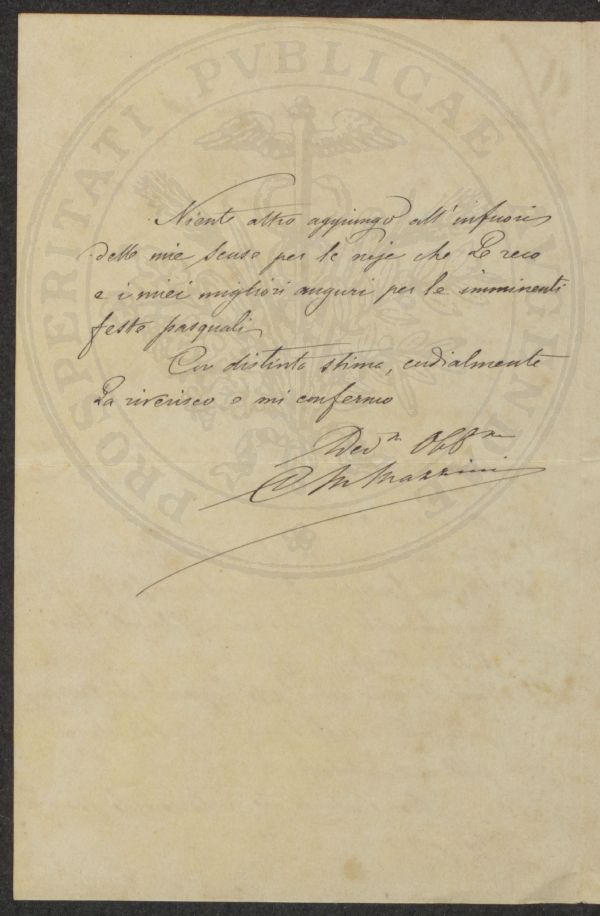 PROSPERITATI PVBLICAE AVGENDAE
Niente altro aggiungo all'infuori
delle mie scuse per le noje che Le reco
e i miei migliori auguri per le imminenti
feste pasquali
Con distinta stima, cordialmente
La riverisco e mi confermo
Dev.mo Obb.mo
M Mazzini